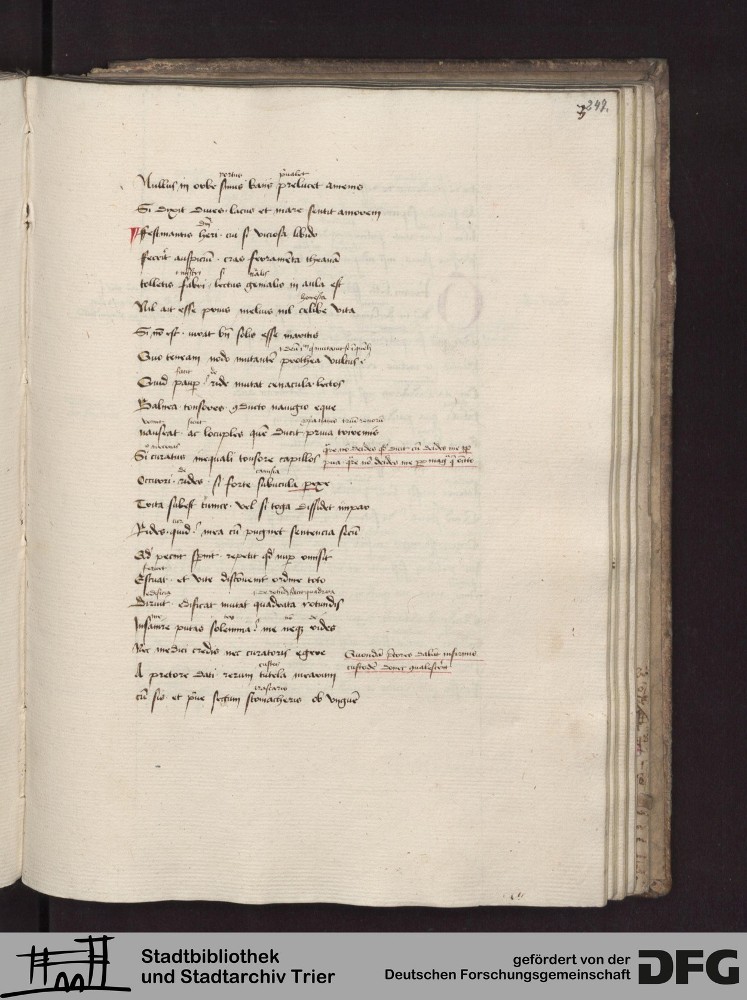 248.
portus prevalet
Nullus in orbe sinus bais prelucet amenis
Si dixit dives lacus et mare sentit amorem
Festinantis heri cui si viciosa libido
Fecerit auspicium cras ferramenta theanum
tolletis fabri lectus genialis in aula est
Nil ait esse prius melius nil celibe vita
Si non est iurat bn solis esse maritis
Quo teneam nodo mutante prothea vultus
Quid paup ride mutat cenacula lectos
Balnea tonsores conducto navigio eque
nauseat ac locuples quem ducit priva triremis
Si curatus inequali tonsore capillos
Occurri rides si forte subucula pexe
Trita subest tunice vel si toga dissidet impar
Rides quid mea cum pugnet sentencia secum
Quod peciit spernit repetit quod nuper omisit
Estuat et vite disconvenit ordine toto
edificat
Diruit edificat mutat quadrata rotundis
Insanire putas solemnia me neque rides
Nec medici credis nec curatoris egere
Quondam pretores dabant insanienti
custodem donec
custos
A pretore dati rerum tutela mearum
cum sis et prave sectum stomacheris ob unguem
Stadtbibliothek
und Stadtarchiv Trier
gefördert von der
Deutschen Forschungsgemeinschaft
DFG